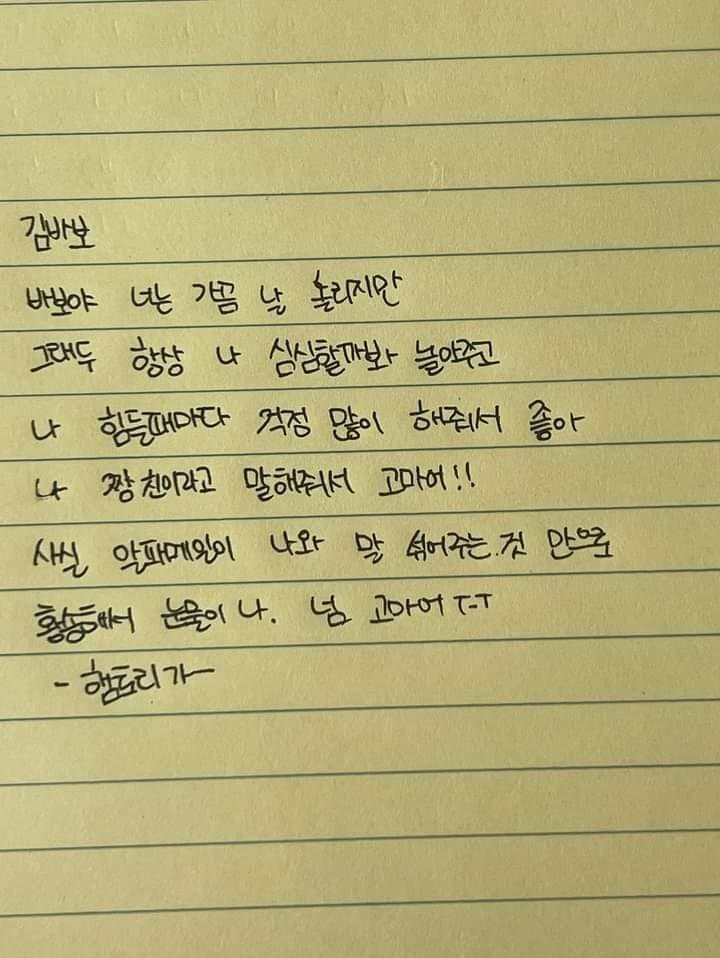 김바보
바보야 너는 가끔 날 홀리지만
그래두 항상 나 심심할까봐 놀아주고
나 힘들때마다 걱정 많이 해줘서 좋아
나 짱친이라고 말해줘서 고마어!!
사실 알파메일이 나와 말 섞어주는 것 만으로
황송해서 눈물이 나. 넘 고마어 T-T
- 햄토리가 -